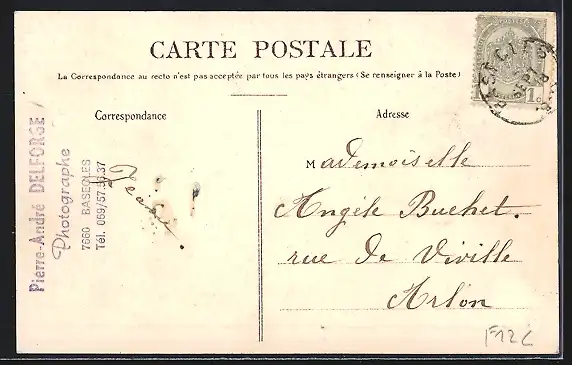 CARTE POSTALE
La Correspondance au recto n'est pas acceptée par tous les pays étrangers (Se renseigner à la Poste)
Correspondance
Adresse
Pierre-André DELFORGE
Photographe
7660 BASECLES
Tél. 069/57.56.37
Mademoiselle
Angèle Buchet.
rue de Viville
Arlon
F12C